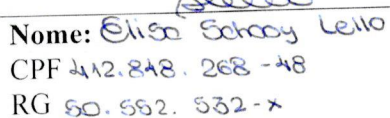 Nome: Elisa Schooy Lello
CPF 412.848.268-48
RG 50.552.532-x